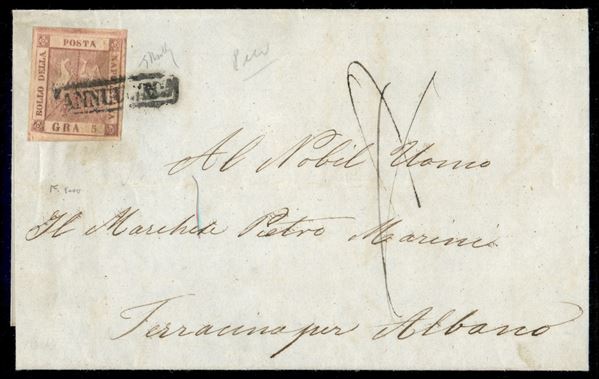 POSTA
BOLLO DELLA
NA
GRA 5
ANNULLATO
Al Nobil Uomo
Il Marchese Pietro Marini
Terracina per Albano